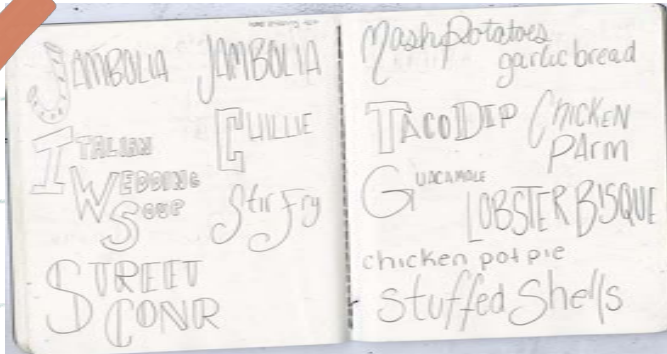 JAMBOLIA JAMBOLIA
ITALIAN
WEDDING
SOUP
CHILLIE
Stir Fry
STREET
CONR
MashPotatoes
garlic bread
TACO DIP
CHICKEN
PARM
GUACAMOLE
LOBSTER BISQUE
chicken pot pie
Stuffed Shells